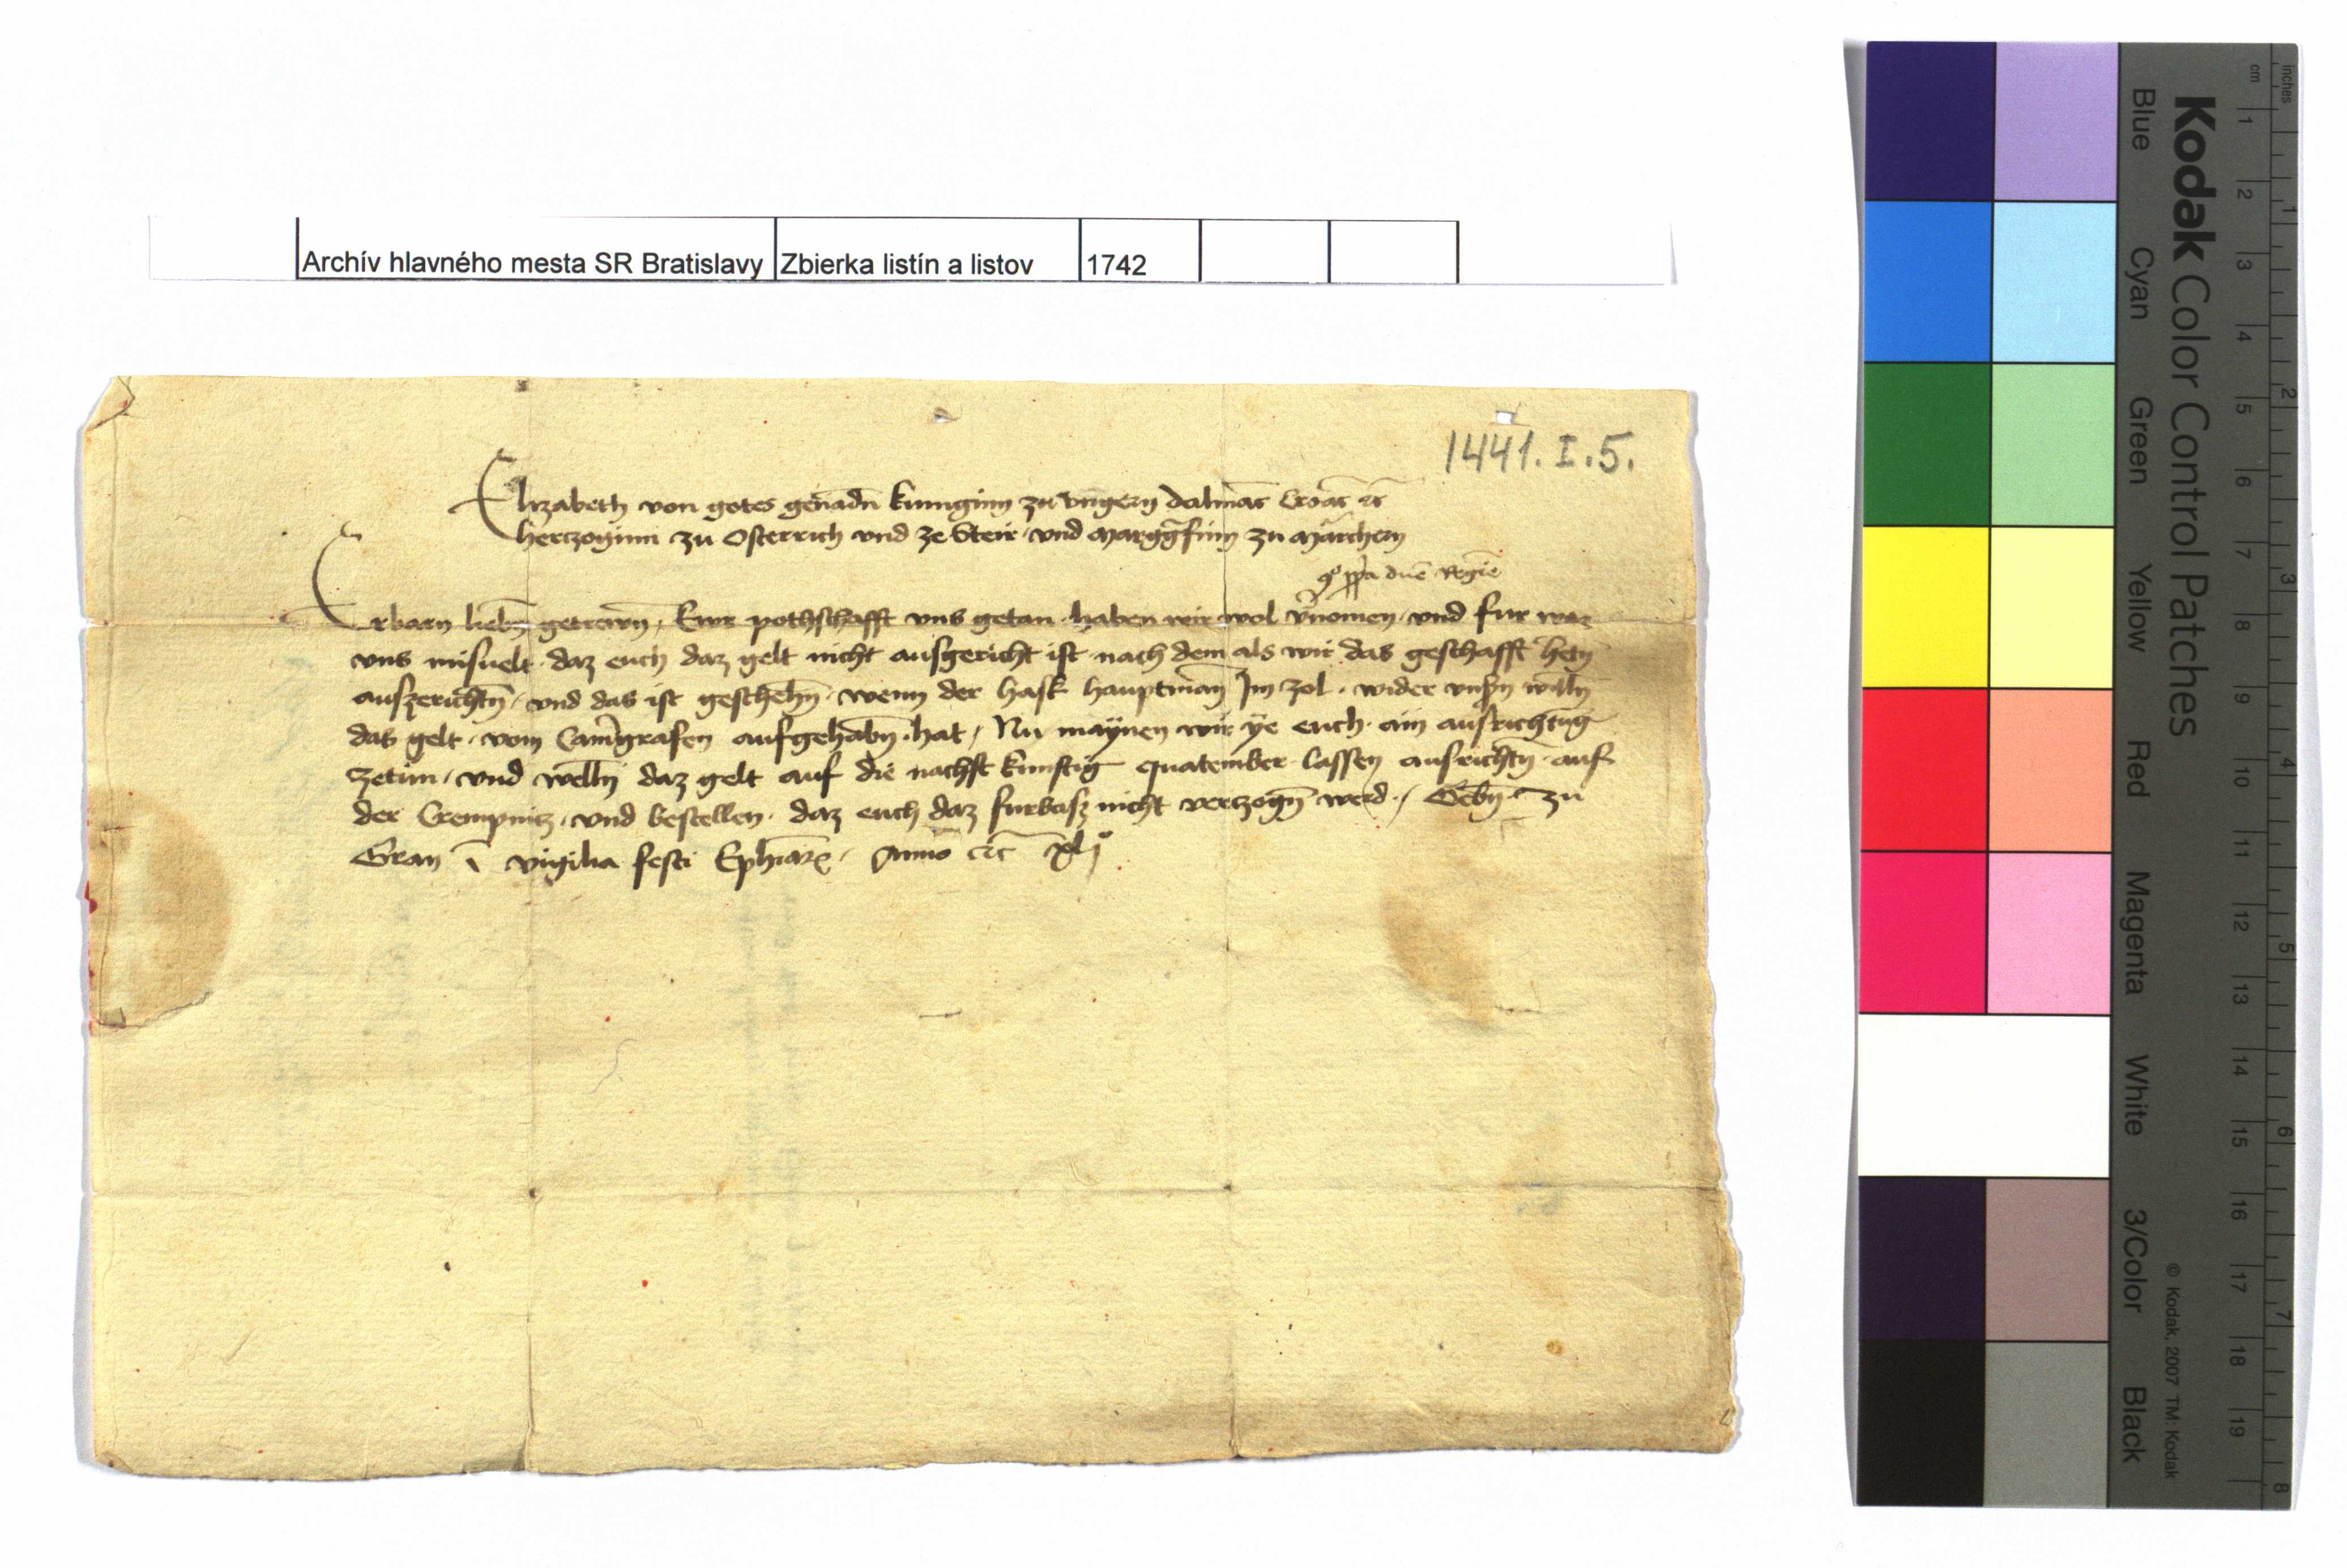 Archív hlavného mesta SR Bratislavy Zbierka listín a listov 1742
1441. I. 5.
Elizabeth von gotes genadn kuniginn zu Vngern Dalmac Croac etc
hertzoginn zu Osterrich vnd ze Steir vnd Marggrafinn zu Marhern
dne Regie
Erbarn liebn getrewn, Ewr pothschafft vns getan haben wir wol vernomen vnd fur war
vns misuelt daz euch daz gelt nicht ausgericht ist nach dem als wir das geschafft hetn
auszerichtn, vnd das ist geschehn, wenn der Hask hauptman Im zol, wider vnsern willn
das gelt, vom Camergrafen aufgehabn hat, Nu maynen wir ye euch ain ausrichtung
zetun, vnd welln daz gelt auf die nachst kunftig quatember lassen ausrichtn auf
der Crempnitz, vnd bestellen, daz euch daz furbasz nicht vertzogn werd, Gebn zu
Gran in vigilia festi Ephiarum Anno etc xljo
Kodak Color Control Patches
Blue Cyan Green Yellow Red Magenta White 3/Color Black
© Kodak, 2007 TM: Kodak
cm 1 2 3 4 5 6 7 8 9 10 11 12 13 14 15 16 17 18 19
inches 1 2 3 4 5 6 7 8